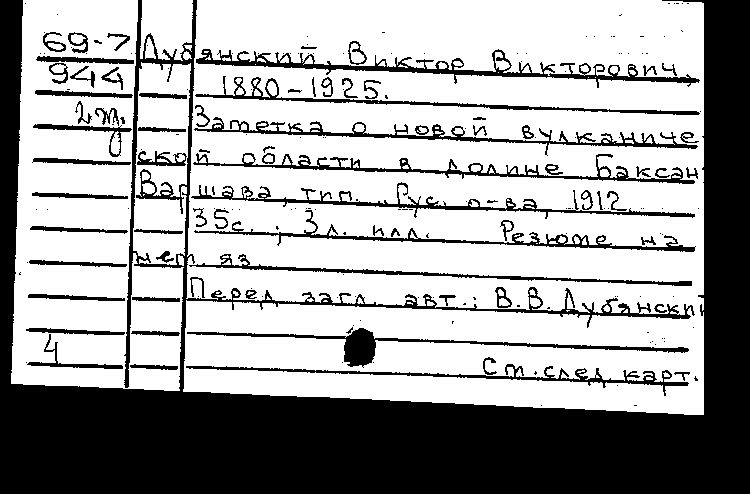 69-7 Дубянский, Виктор Викторович,
944 1880-1925.
2 эк. Заметка о новой вулканиче-
ской области в долине Баксан
Варшава, тип. "Рус. о-ва, 1912.
35с.; 3л. илл. Резюме на
нем. яз.
Перед загл. авт.: В.В. Дубянский
4
См. след. карт.